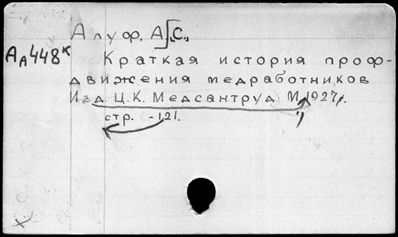 Алуф, А. С.
Аа448к
Краткая история проф-
движения медработников
Изд. Ц.К. Медсантруд М. 1927г.
стр. -121.